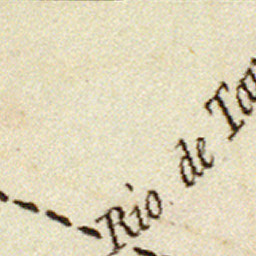 Rio de Tar